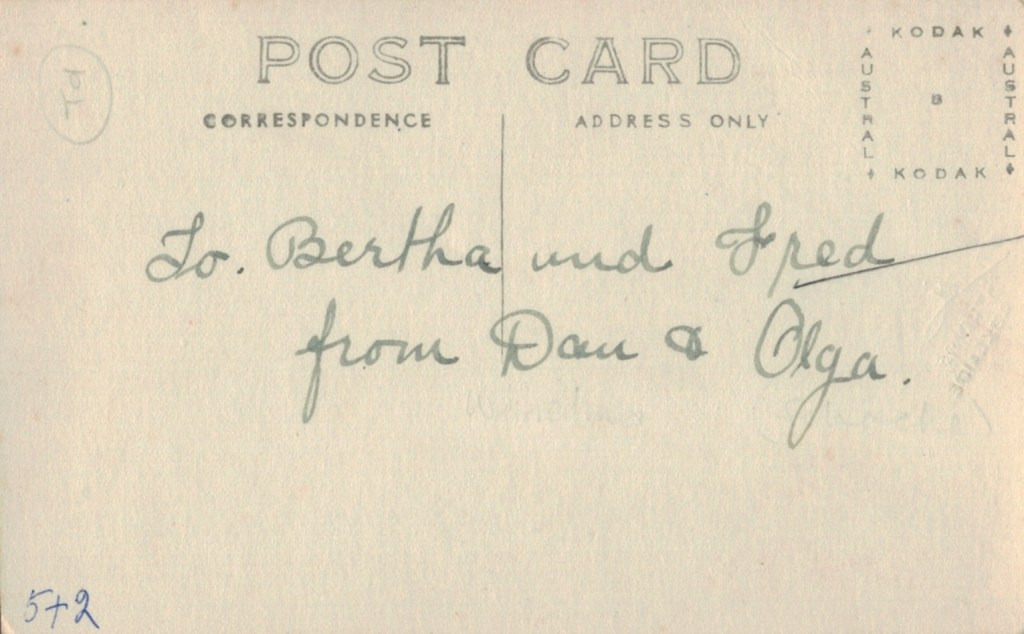 POST CARD
CORRESPONDENCE
ADDRESS ONLY
KODAK
AUSTRAL
B
AUSTRAL
KODAK
To. Bertha und Fred
from Dan & Olga.
5+2